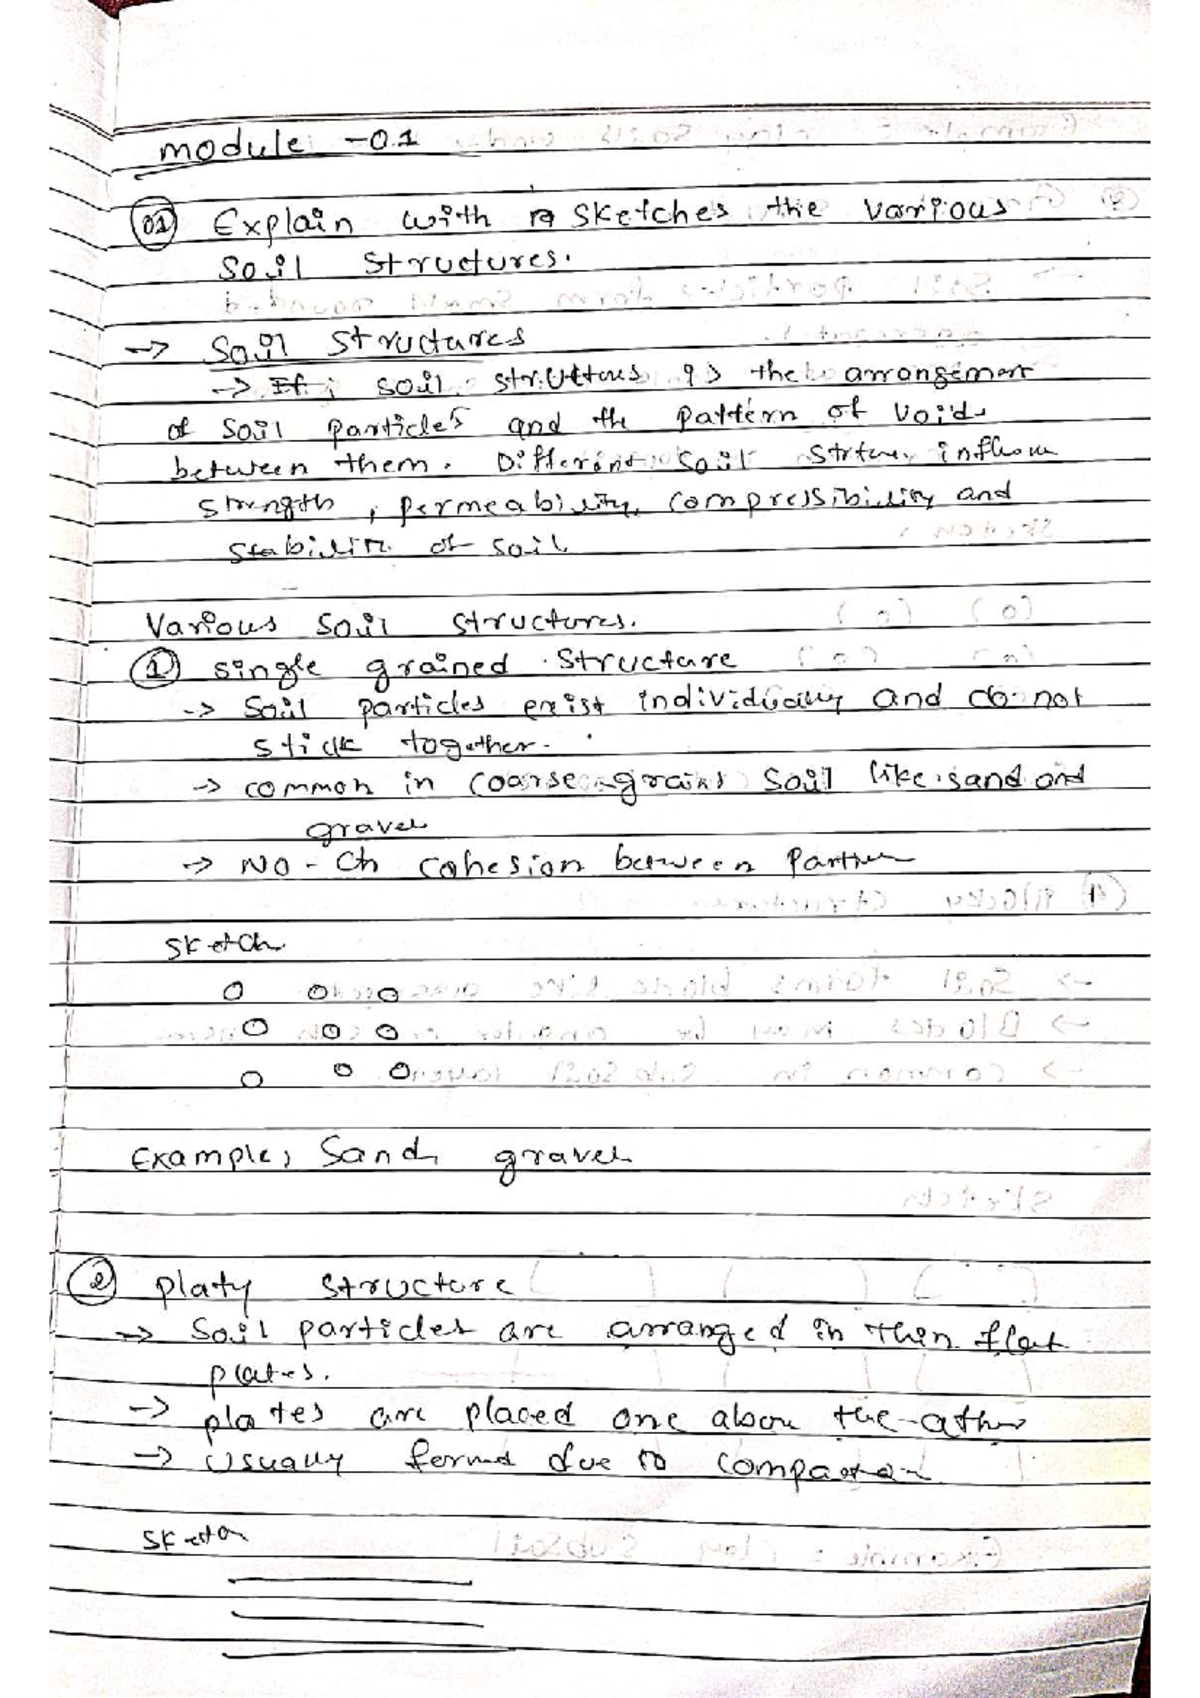 module -01
01 Explain with sketches the various
Soil structures.
-> Soil structures
-> soil structous is the arrangement
of soil particles and the pattern of voids
between them. Different soil influence
strength, permeability, compressibility and
stability of soil
Various Soil structures.
1 single grained structure
-> Soil particles exist individually and do not
stick together.
-> common in coarse-grains soil like sand and
gravel
-> NO - Ch cohesion between
Sketch
Example, Sand, gravel
2 platy structure
-> Soil particles are arranged in thin flat
plates.
-> plates are placed one above the other
-> Usually formed due to compaction
Sketch